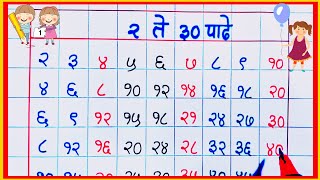 1
२ ते ३० पाढे
२ ३ ४ ५ ६ ७ ८ ९ १०
४ ६ ८ १० १२ १४ १६ १८ २०
६ ९ १२ १५ १८ २१ २४ २७ ३०
८ १२ १६ २० २४ २८ ३२ ३६ ४०